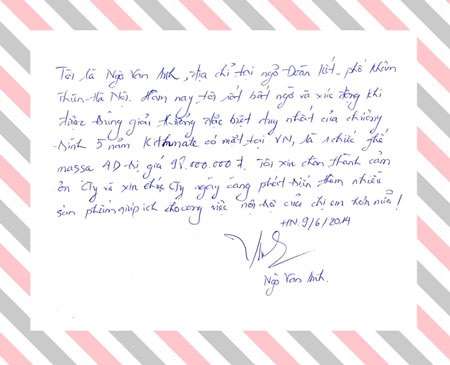 Tôi là Ngô Vân Anh, địa chỉ tại ngõ Đoàn Kết - phố Khâm
Thiên - Hà Nội. Hôm nay tôi rất bất ngờ và xúc động khi
được trúng giải thưởng đặc biệt duy nhất của chương
trình 5 năm Kithmate có mặt tại VN, là 1 chiếc ghế
massa 4D trị giá 98.000.000 đ. Tôi xin chân thành cảm
ơn Cty và xin chúc Cty ngày càng phát triển thêm nhiều
sản phẩm giúp ích cho công việc nội trợ của chị em hơn nữa!
HN. 9/6/2014
Ngô Vân Anh.